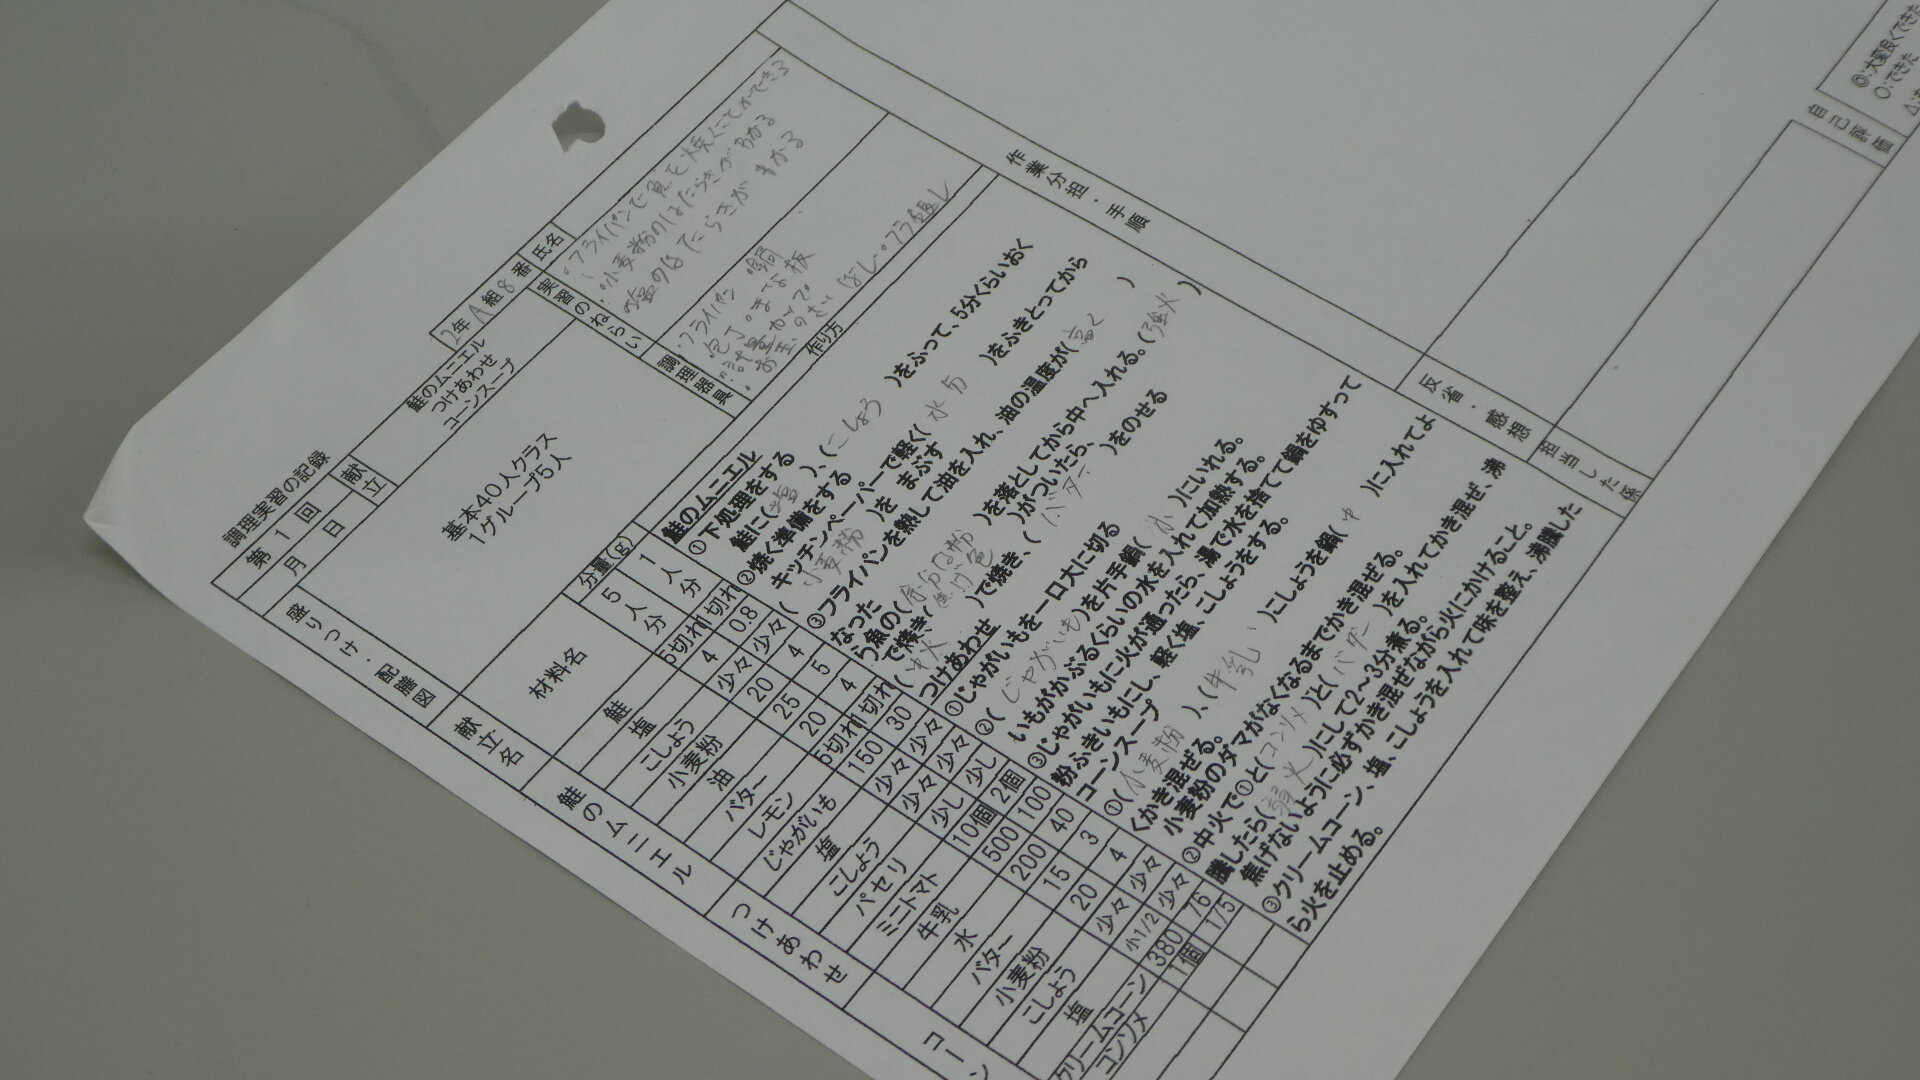 調理実習の記録
第1回
月 日
献立
鮭のムニエル
つけあわせ
コーンスープ
2年A組8番
氏名
実習のねらい
・フライパンで魚を焼くことができる
・小麦粉のはたらきがわかる
・塩のはたらきがわかる
調理器具
・フライパン 鍋
包丁・まな板
・計量カップ
・お玉
盛りつけ・配膳図
基本40人クラス
1グループ5人
献立名
材料名
分量(g)
5人分
1人分
鮭のムニエル
鮭 5切れ 1切れ
塩 4 0.8
こしょう 少々 少々
小麦粉 20 4
油 25 5
バター 20 4
レモン 5切れ 1切れ
つけあわせ
じゃがいも 150 30
塩 少々 少々
こしょう 少々 少々
パセリ 少し 少し
ミニトマト 10個 2個
コーン
牛乳 500 100
水 200 40
バター 15 3
小麦粉 20 4
こしょう 少々 少々
塩 小1/2 少々
クリームコーン 380 76
コンソメ 1個 1/5
作り方
鮭のムニエル
①下処理をする
鮭に(塩)、(こしょう)をふって、5分くらいおく
②焼く準備をする
キッチンペーパーで軽く(水分)をふきとってから
(小麦粉)を まぶす
③フライパンを熱して油を入れ、油の温度が(高く)
なった
う魚の(余分な粉)を落としてから中へ入れる。(強火)
で焼き、(焦げ色)がついたら、
(中火)で焼き、(バター)をのせる
つけあわせ
①じゃがいもを一口大に切る
②(じゃがいも)を片手鍋(水)にいれる。
いもがかぶるくらいの水を入れて加熱する。
③じゃがいもに火が通ったら、湯で水を捨てて鍋をゆすって
粉ふきいもにし、軽く塩、こしょうをする。
コーンスープ
①(小麦粉)、(牛乳)こしょうを鍋(中)に入れてよ
くかき混ぜる。
小麦粉のダマがなくなるまでかき混ぜる。
②中火で①と(コンソメ)と(バター)を入れてかき混ぜ、沸
騰したら(弱火)にして2～3分煮る。
焦げないように必ずかき混ぜながら火にかけること。
③クリームコーン、塩、こしょうを入れて味を整え、沸騰した
ら火を止める。
作業分担・手順
反省・感想
担当した係
自己評価
◎:大変良くできた
○:できた